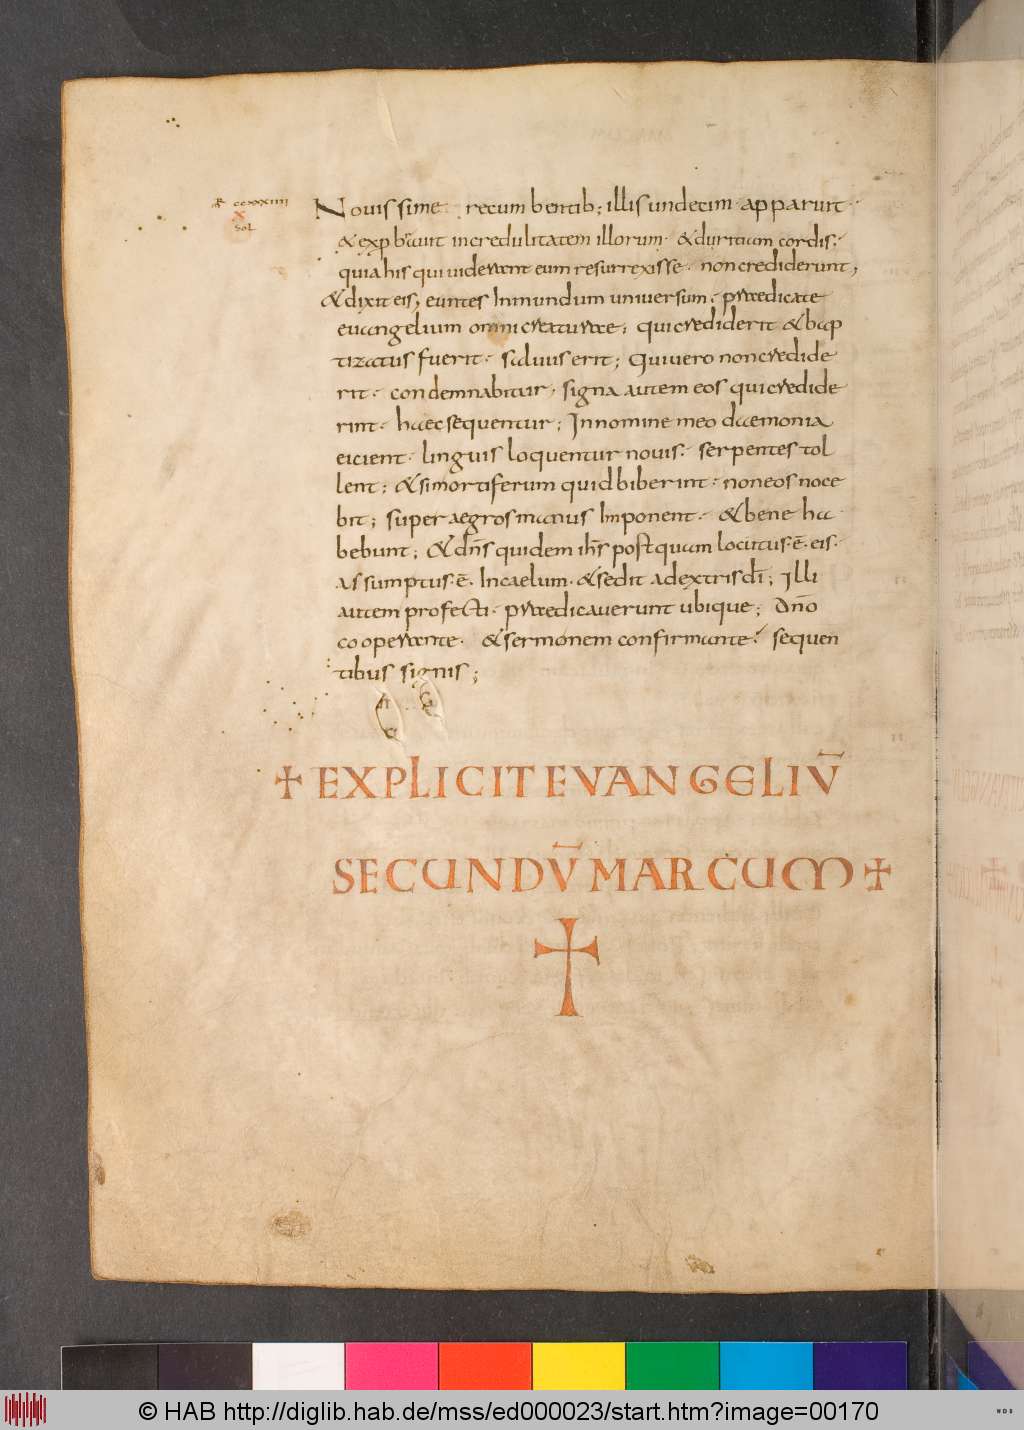 mr ccxxxiiii
X
Sol
Novissime recumbentib; illis undecim apparuit
& exprobravit incredulitatem illorum · & duritiam cordis ·
quia his qui viderant eum resurrexisse · non crediderunt;
& dixit eis; euntes In mundum universum · praedicate
evangelium omni creaturae; qui crediderit & bap
tizatus fuerit · salvus erit; Qui vero non credide
rit · condemnabitur · signa autem eos qui credide
rint · haec sequentur; In nomine meo daemonia
eicient · linguis loquentur novis · serpentes tol
lent; & si mortiferum quid biberint · non eos noce
bit; super aegros manus Imponent · & bene ha
bebunt; & dn̄s quidem ih̄s postquam locutus · ē · eis ·
assumptus · ē · In caelum · & sedit a dextris dī; Illi
autem profecti · praedicaverunt ubique; Dn̄o
cooperante · & sermonem confirmante · sequen
tibus signis;
✝ EXPLICIT EVANGELIV̄
SECUNDV̄ MARCUM ✝
© HAB http://diglib.hab.de/mss/ed000023/start.htm?image=00170